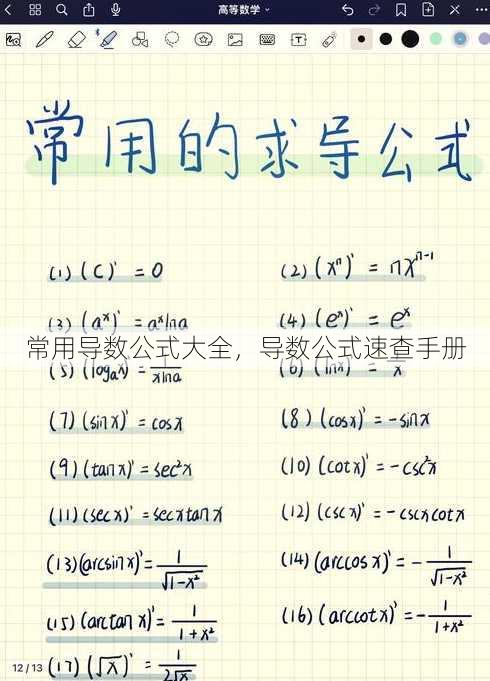 高等数学
常用的求导公式
(1) (C)' = 0
(2) (xⁿ)' = nxⁿ⁻¹
(3) (aˣ)' = aˣlna
(4) (eˣ)' = eˣ
常用导数公式大全，导数公式速查手册
(5) (logₐx)' = 1/(xlna)
(6) (lnx)' = 1/x
(7) (sinx)' = cosx
(8) (cosx)' = -sinx
(9) (tanx)' = sec²x
(10) (cotx)' = -csc²x
(11) (secx)' = secxtanx
(12) (cscx)' = -cscxcotx
(13) (arcsinx)' = 1/√(1-x²)
(14) (arccosx)' = -1/√(1-x²)
(15) (arctanx)' = 1/(1+x²)
(16) (arccotx)' = -1/(1+x²)
12/13
(17) (√x)' = 1/(2√x)